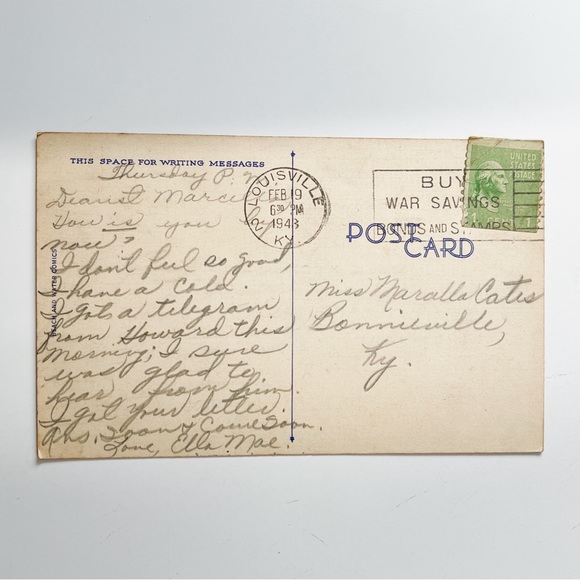 THIS SPACE FOR WRITING MESSAGES
Thursday P.M.
Dearest Marc
How is you
now?
I don't feel so good,
I have a cold.
I got a telegram
from Howard this
morning; I sure
was glad to
hear from him.
I got your letter.
Ans. soon & Come Soon.
Love, Ella Mae.
BEACH AND WATER COMICS
LOUISVILLE
FEB 19
6 30 PM
1943
KY.
BUY
WAR SAVINGS
BONDS AND STAMPS
UNITED
STATES
POSTAGE
1
POST
CARD
Miss Maralla Cates
Bonnieville,
Ky.